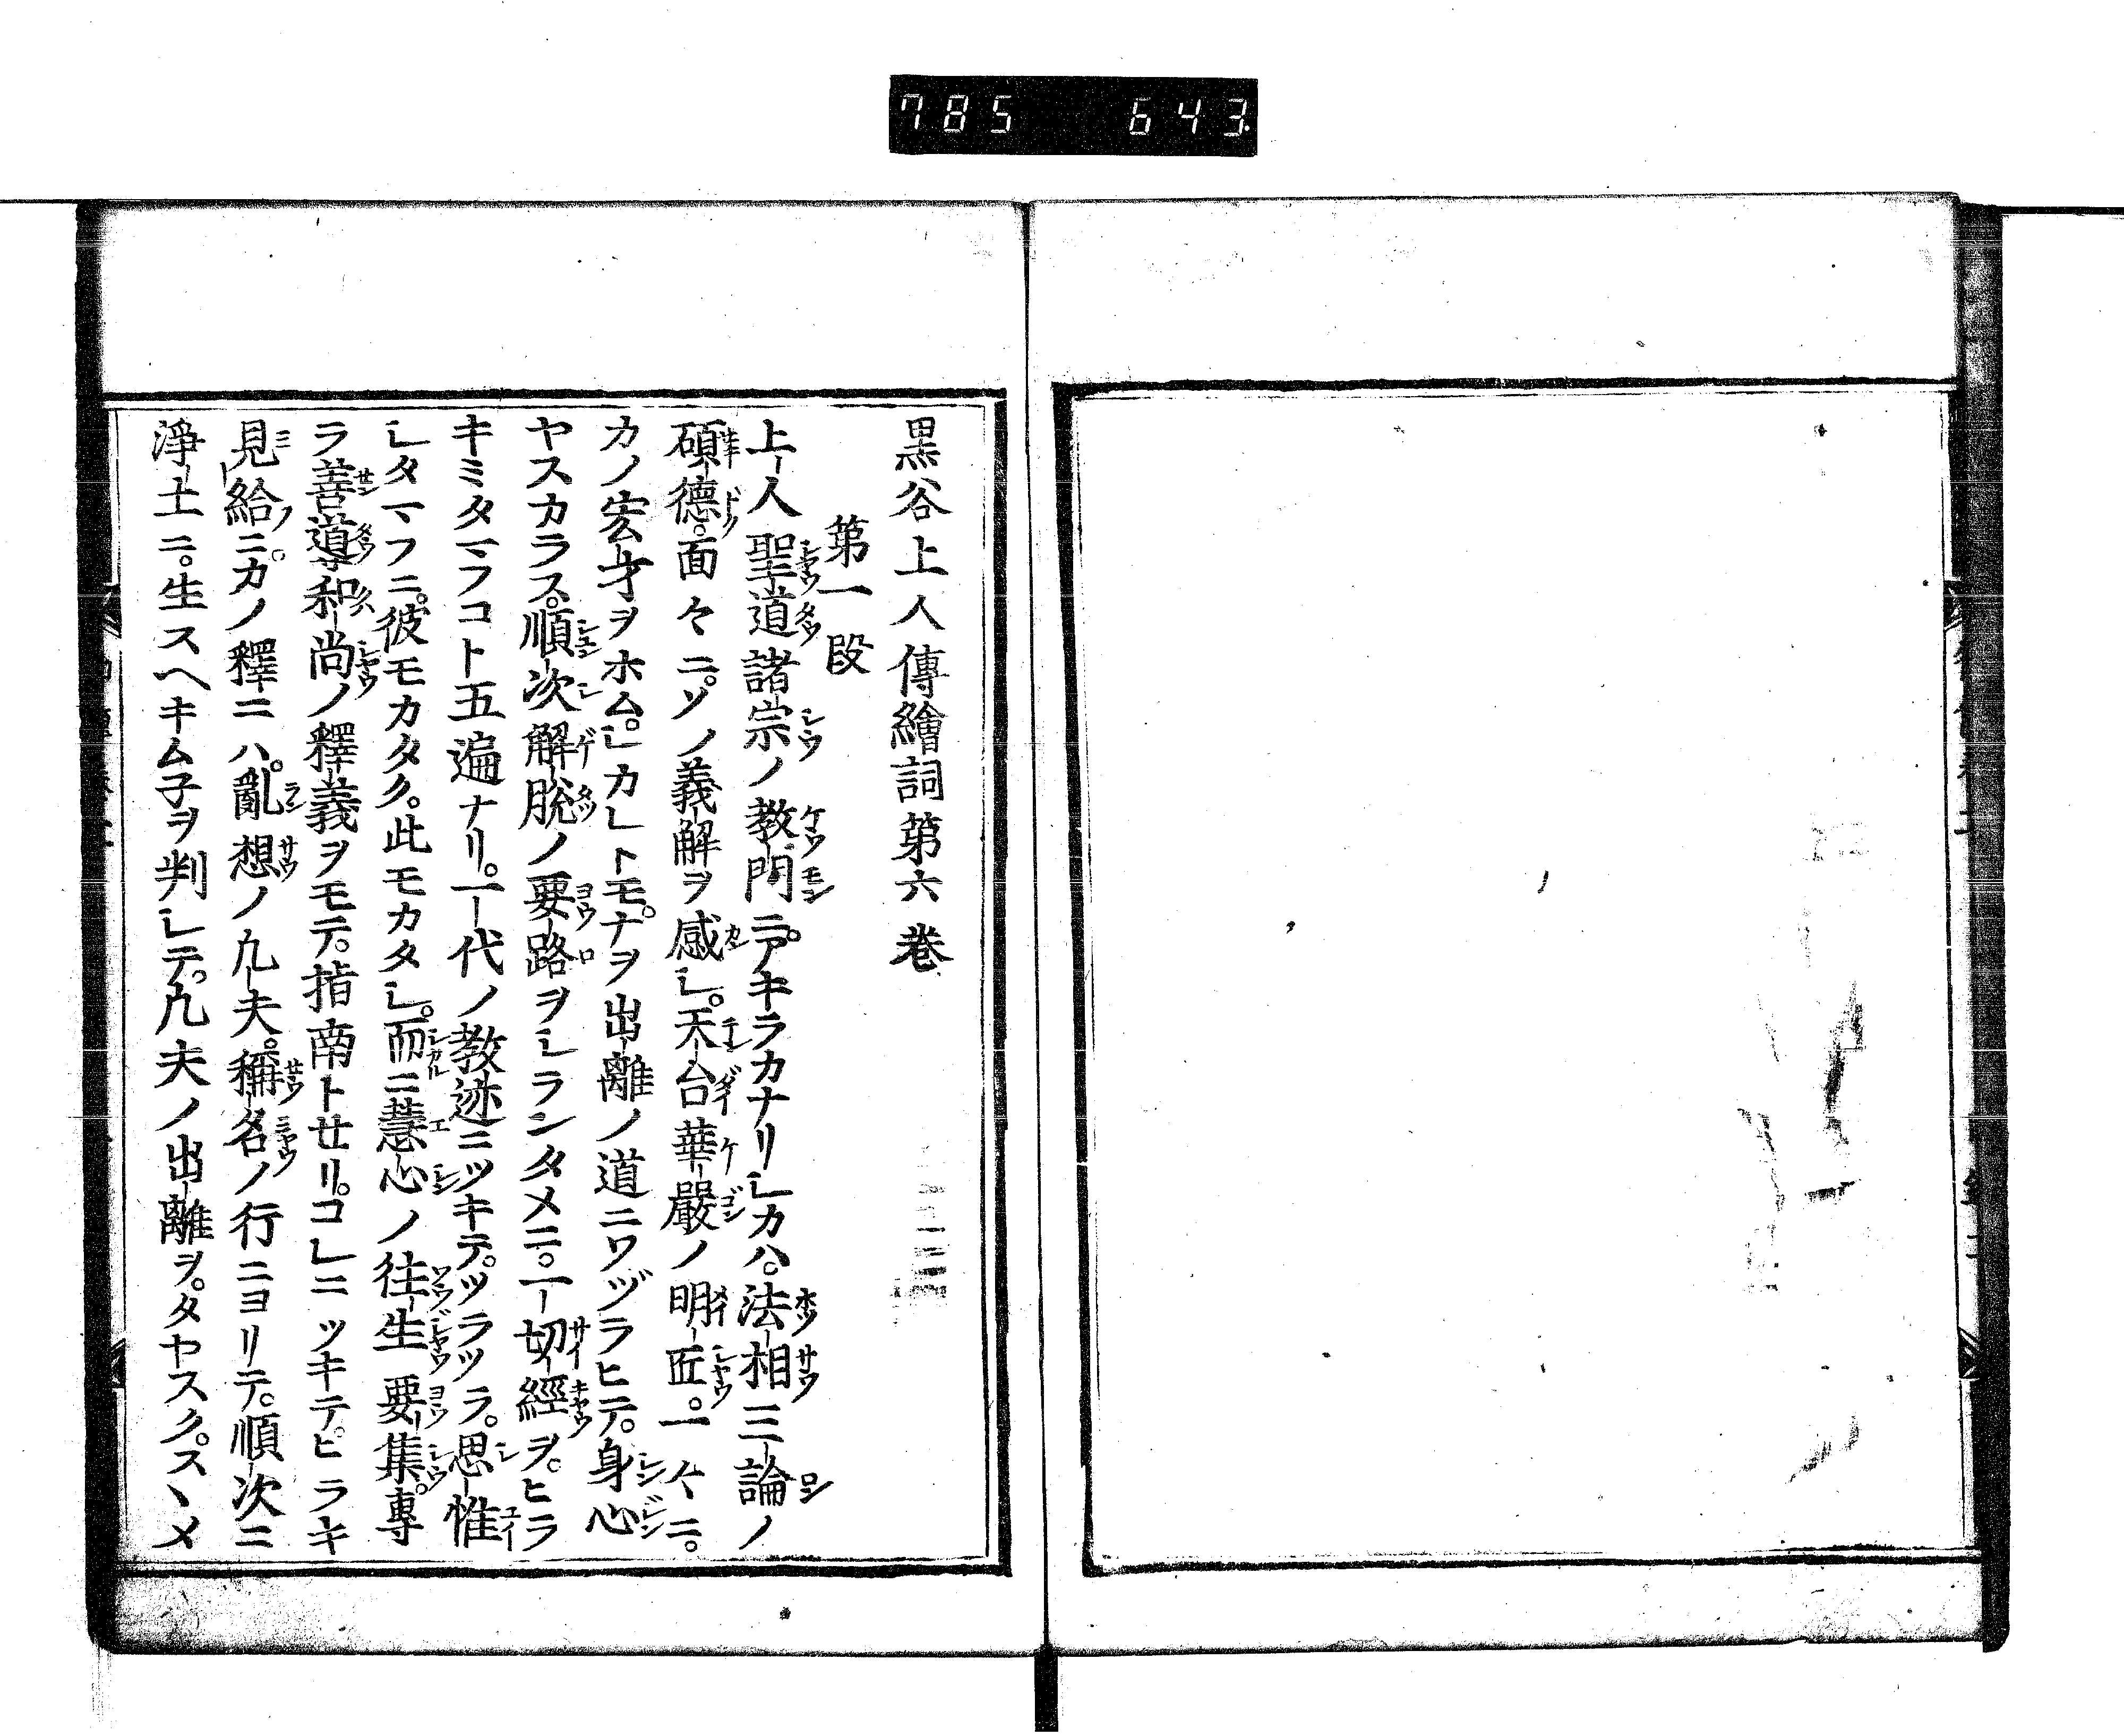 785 643
黒谷上人傳繪詞第六巻
第一段
上人聖道諸宗ノ教門ニ。アキラカナリシカハ。法相三論ノ
碩德。面々ニ。ソノ義解ヲ感シ。天台華嚴ノ明匠。一々ニ。
カノ宏才ヲホム。シカレトモ。ナヲ出離ノ道ニワヅラヒテ。身心
ヤスカラス。順次解脱ノ要路ヲシランタメニ。一切經ヲ。ヒラ
キミタマフコト五遍ナリ。一代ノ教迹ニツキテ。ツラツラ。思惟
シタマフニ。彼モカタク。此モカタシ。而ニ慧心ノ往生要集。專
ラ善導和尚ノ釋義ヲモテ。指南トセリ。コレニツキテ。ヒラキ
見給ニ。カノ釋ニハ。亂想ノ凢夫。稱名ノ行ニヨリテ。順次ニ
淨土ニ。生スヘキムネヲ判シテ。凢夫ノ出離ヲ。タヤスク。スヽメ